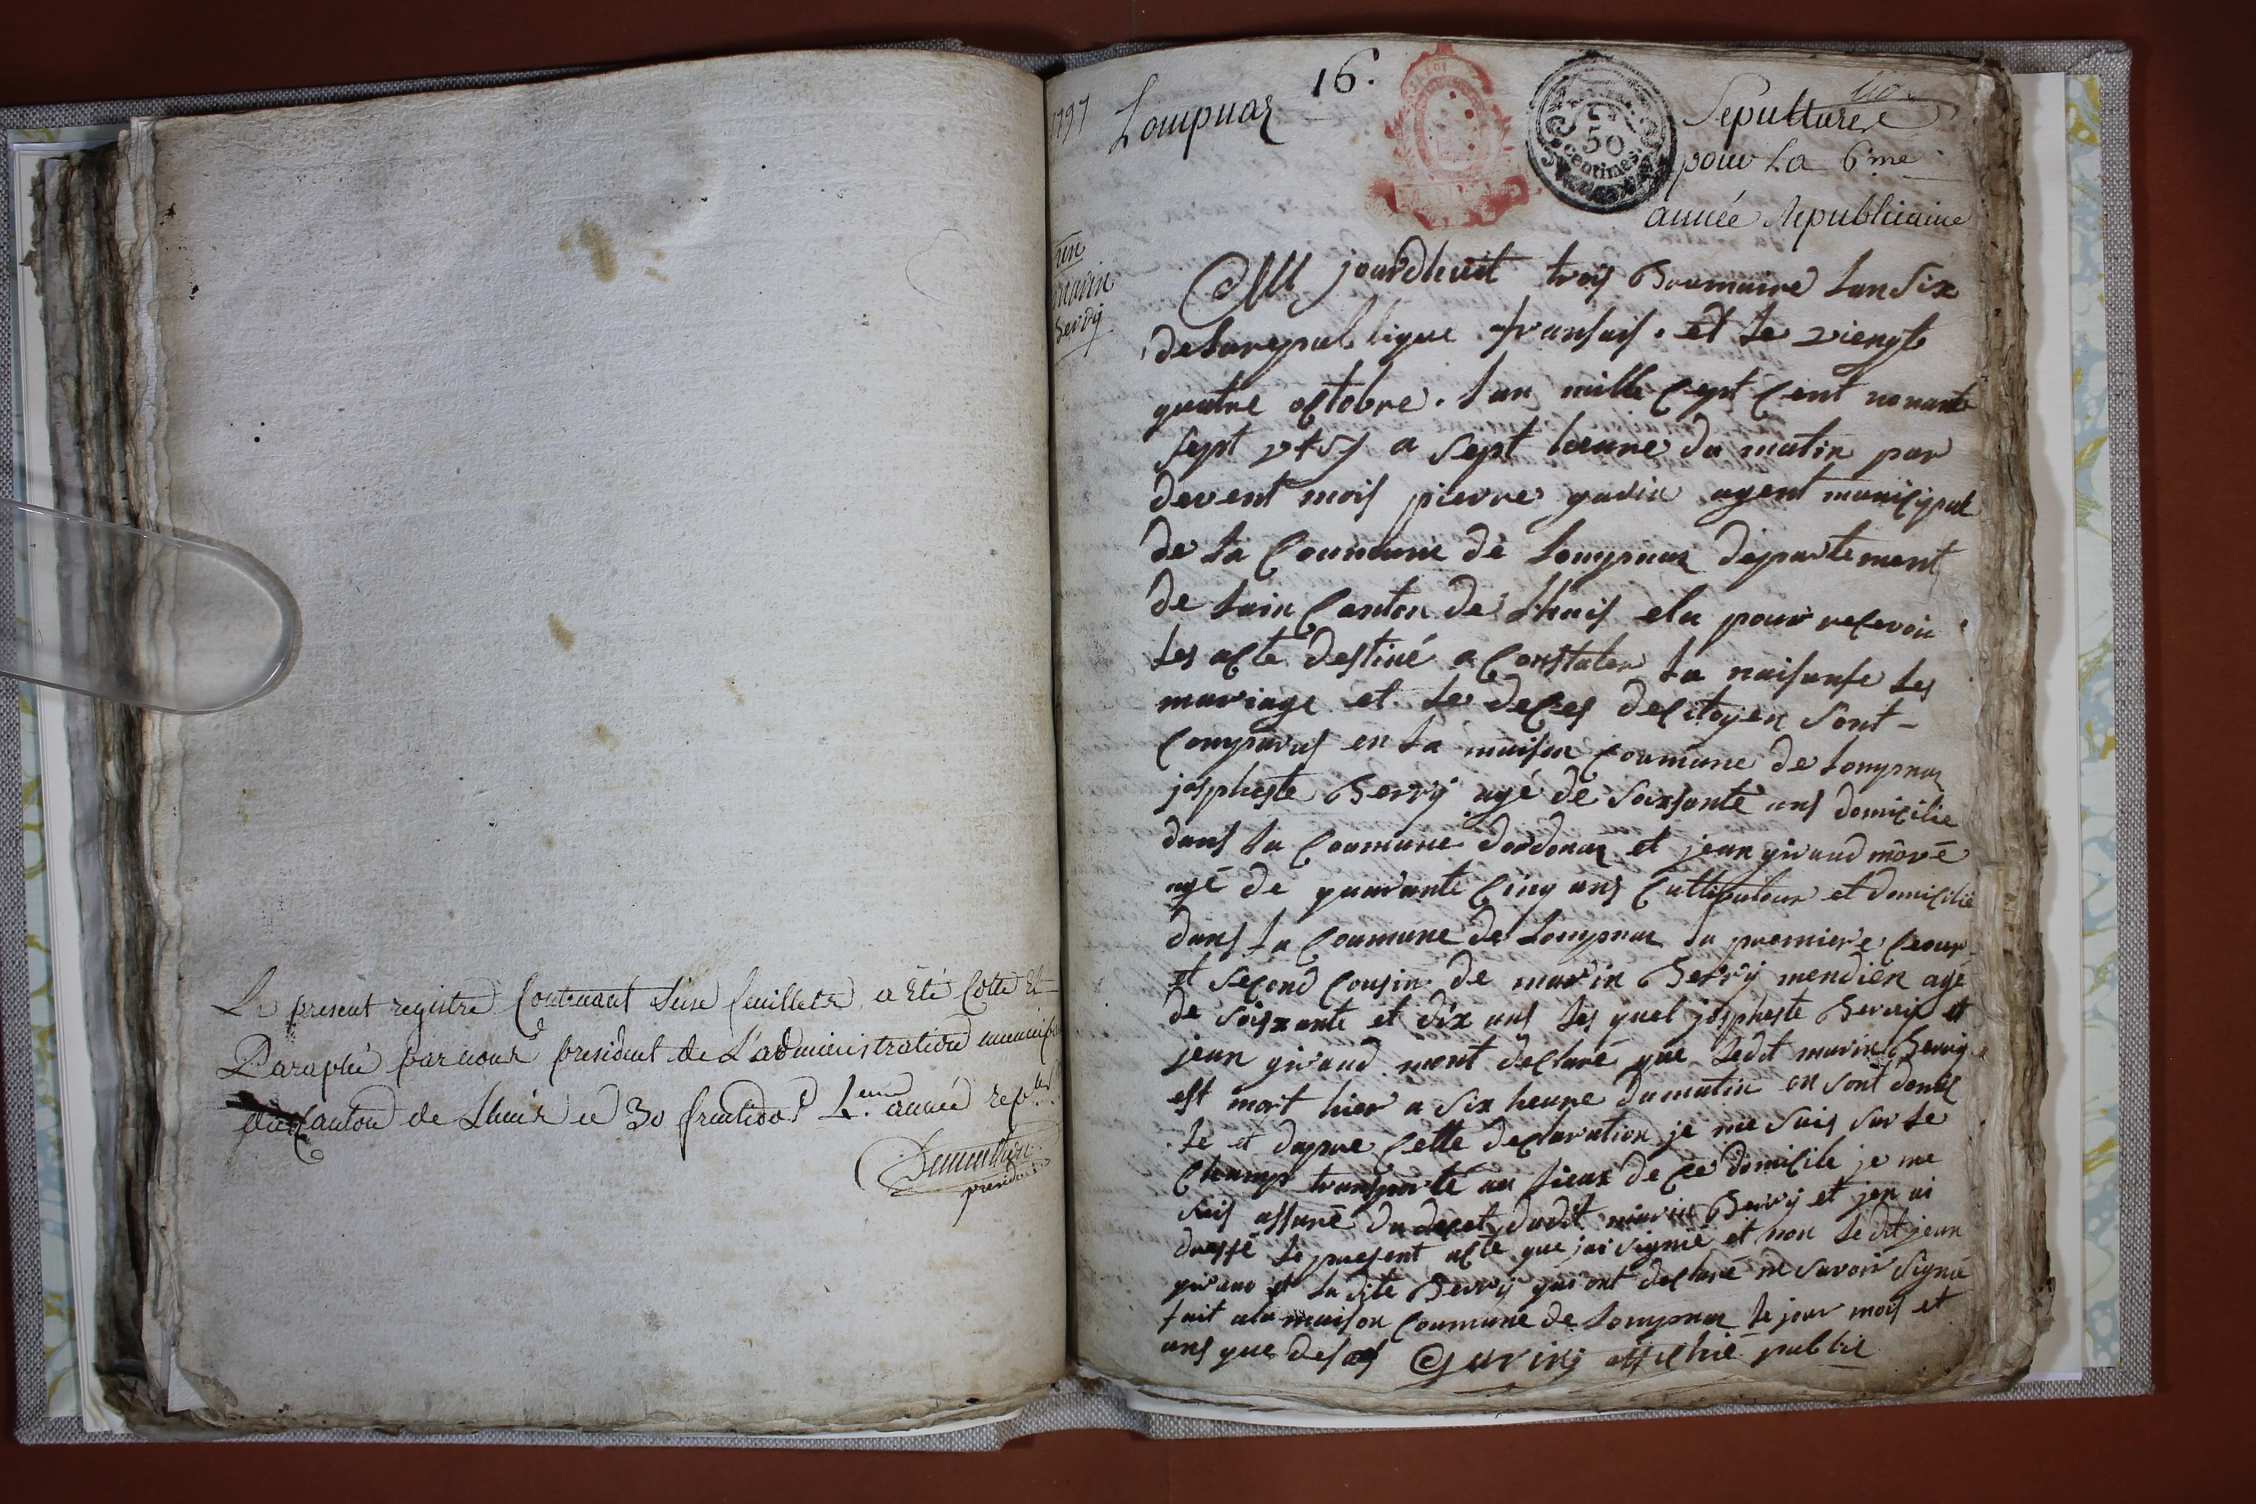 Le present registre Contenant Seise feuillets a Eté Cotté Et
Paraphé par nous president de L'administration municip
du Canton de Lhuis ce 30 fructidor 5.eme année rep.
president
1797
Lompnaz
16.
50
centimes
Sepultures
pour La 6.me
année Republicaine
marin
Berrÿ
Au jourdhuit trois Brumaire lan Six
de la republique fransais. et le viengt
quatre octobre. lan mille Cept Cent nonante
Sept v s a sept heure du matin par
devent mois pierre gavin agent municipal
de la Coumune de lompnaz departement
de lain Canton de Lhuis elu pour recevoir
les acte destiné a Constater la naisanse les
mariage et le deces de Citoyen Sont
Comparus en la maison Coumune de lompnaz
jospheste Berrÿ agé de Soixsante ans domicilie
dans la Coumune dordonaz et jean giraud moré
agé de quarante Cinq ans Cultivateur et domicilié
dans la Coumune de lompnaz la premiere Ceour
et Second Cousin de marin Berrÿ mendien agé
de soisxante et dix ans les quel jospheste Berrÿ et
jean giraud mont declaré que ledit marin Berrÿ
est mort hier a Six heure du matin en sont domici
le et dapre Cette declaration je me Suis Sur le
Champ transporté au lieux de Ce domicile je me
suis assuré du decet dudit marin Berrÿ et jen ai
dressé le present acte que jai signié et non le dit jean
giraud et la dite Berrÿ qui ont declaré ne savoir signié
fait a la maison Coumune de lompnaz le jour mois et
ans que desus Gavin offichié publie